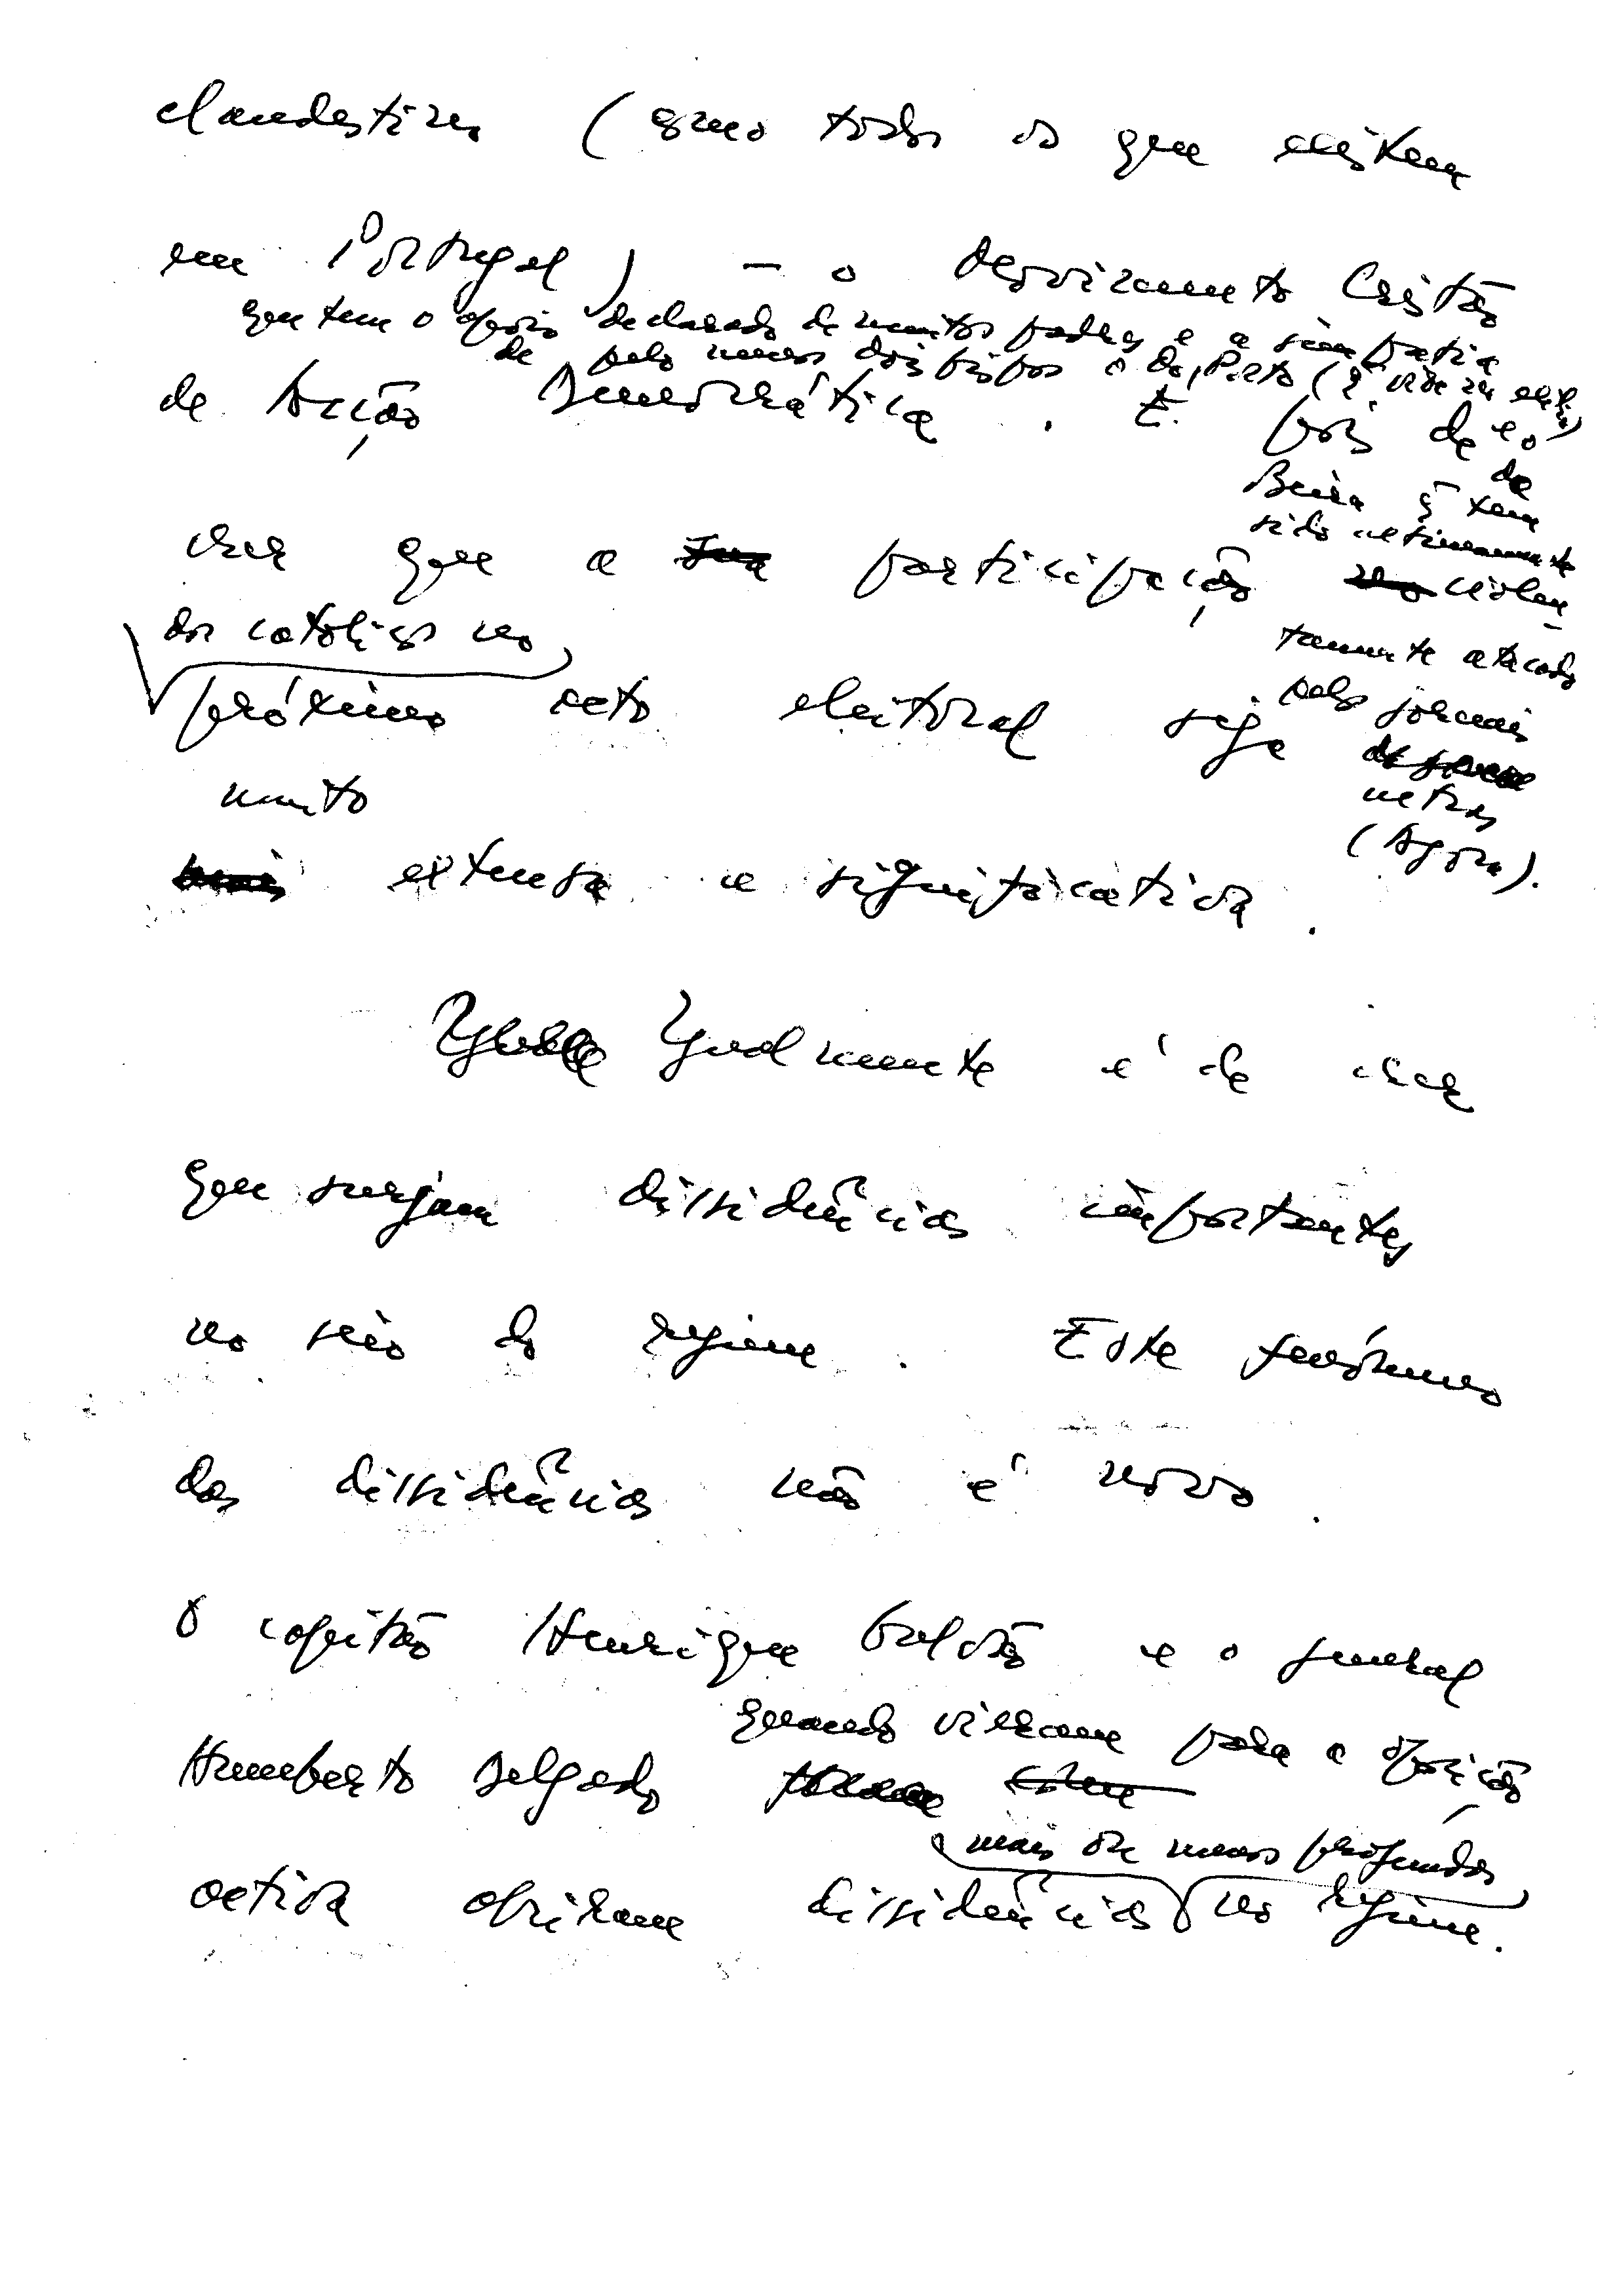 clandestino (como todos os que existem
em Portugal) — o Movimento Cristão
que tem o apoio declarado de muitos padres e a simpatia
de pelo menos dois bispos o do Porto (q vive no exílio)
de Acção Democrática. É pois de
e o
da
Beira q tem
sido ultimamente
crer que a sua participação no violen-
dos católicos no
tamente atacado
próximo acto eleitoral seja
pelos jornais
muito
ultras
(Agora).
mais extensa e significativa.
Igualmente é de crer
que surjam dissidências importantes
no seio do regime. Este fenómeno
das dissidências não é novo.
O capitão Henrique Galvão e o general
quando vieram para a oposição
Humberto Delgado
mais ou menos profundas
activa abriram dissidências no regime.